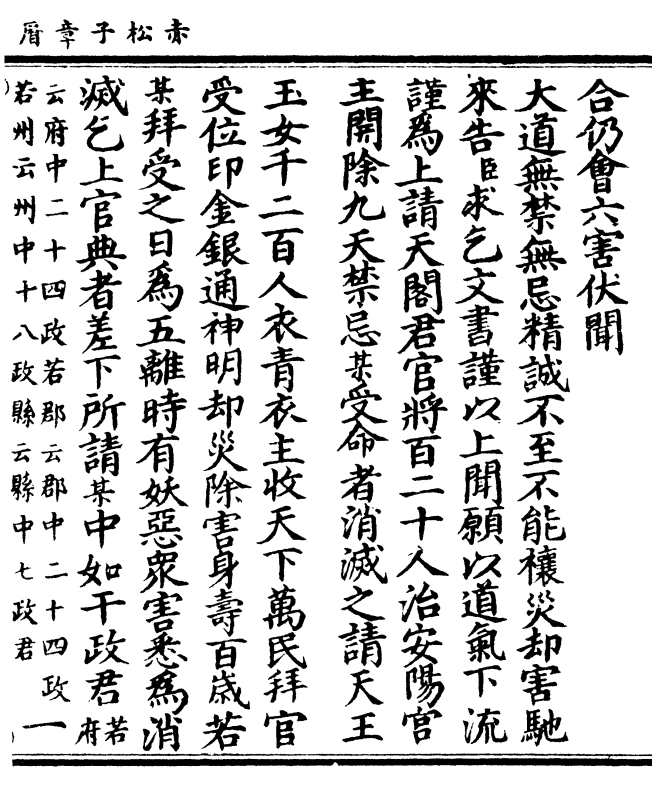 赤松子章曆
合仍會六害伏聞
大道無禁無忌精誠不至不能禳災却害馳
來告臣求乞文書謹以上聞願以道氣下流
謹為上請天閣君官將百二十人治安陽宮
主開除九天禁忌某受命者消滅之請天王
玉女千二百人衣青衣主收天下萬民拜官
受位印金銀通神明却災除害身壽百歲若
某拜受之日為五離時有妖惡眾害悉為消
滅乞上官典者差下所請某中如干政君若府
云府中二十四政若郡云郡中二十四政一
若州云州中十八政縣云縣中七政君